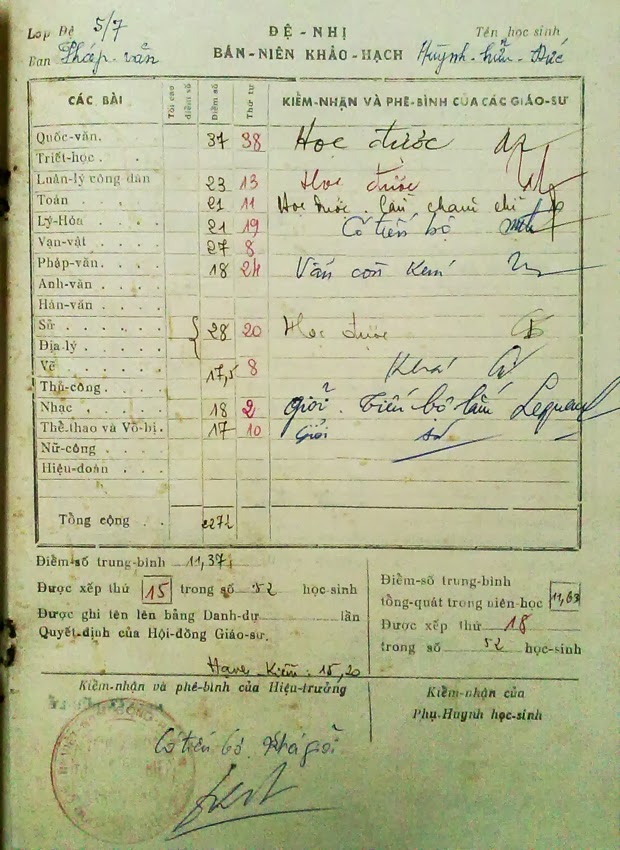 Lớp Đệ 5/7
Ban Pháp-văn
ĐỆ-NHỊ
BÁN-NIÊN KHẢO-HẠCH
Tên học sinh
Huỳnh-hữu-Đức
CÁC BÀI Tối cao điểm số Điểm số Thứ tự KIỂM-NHẬN VÀ PHÊ-BÌNH CỦA CÁC GIÁO-SƯ
Quốc-văn. 37 38 Học được
Triết-học . .
Luân-lý công dân 23 13 Học được
Toán . . 21 11 Học được, chăm chỉ
Lý-Hóa. . . . 21 19 Có tiến bộ
Vạn-vật. . . . 27 8
Pháp-văn. . . . 18 24 Vẫn còn kém
Anh-văn . . . .
Hán-văn . . . .
Sử . . . . . 28 20 Học được
Địa-lý . . . .
Vẽ . . . . . 17,5 8 Khá
Thủ-công. . . .
Nhạc . . . . 18 2 Giỏi. Tiến bộ lắm
Thể.thao và Võ-bị. 17 10 Giỏi
Nữ-công . . .
Hiệu-đoàn . . .
Tổng cộng . . 227½
Điểm-số trung-bình 11,37
Được xếp thứ 15 trong số 52 học-sinh
Được ghi tên lên bảng Danh-dự lần
Quyết-định của Hội-đồng Giáo-sư.
Điểm-số trung-bình
tổng-quát trong niên-học 11,63
Được xếp thứ 18
trong số 52 học-sinh
Kiểm: 15,20
Kiểm-nhận và phê-bình của Hiệu-trưởng
Có tiến bộ. Khá giỏi
Kiểm-nhận của
Phụ-Huynh học-sinh